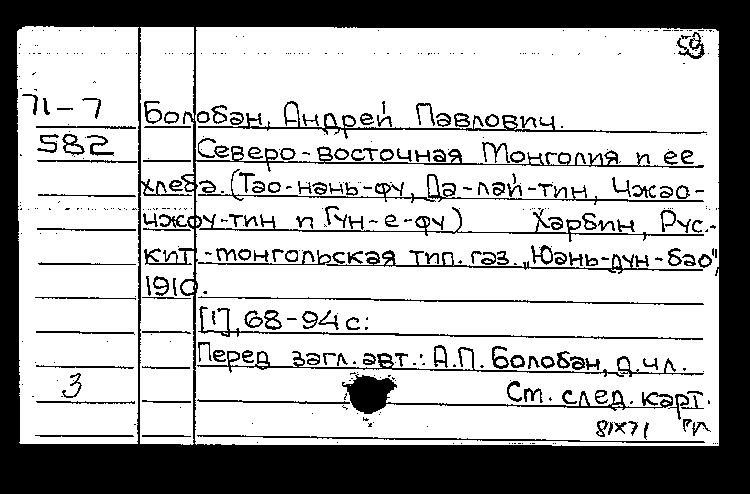 59
71-7 Болобан, Андрей Павлович.
582 Северо-восточная Монголия и ее
хлеба. (Тао-нань-фу, Да-лай-тин, Чжао-
чжоу-тин и Гун-е-фу) Харбин, Рус.-
кит.-монгольская тип. газ. „Юань-дун-бао",
1910.
[1], 68-94 с:
Перед загл. авт.: А.П. Болобан, д.чл.
3 См. след. карт.
81х71